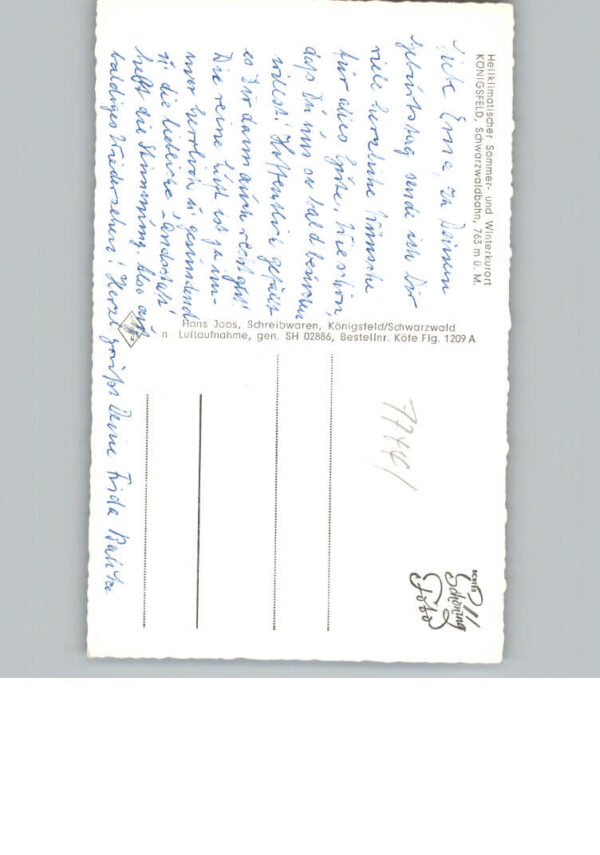 Heilklimatischer Sommer- und Winterkurort
KÖNIGSFELD, Schwarzwaldbahn, 763 m ü. M.
Liebe Erna, zu Deinem
Geburtstag sende ich Dir
viele herzliche Wünsche
für alles Gute. Wie schön,
daß Du nun so bald kommen
willst! Hoffentlich gefällt
es Dir dann auch recht gut!
Die reine Luft ist ja im-
mer herrlich u. gesundend
u. die liebliche Landschaft
hebt die Stimmung. Also auf
baldiges Wiedersehen! Herzl. grüßt Deine Frida
Hans Joos, Schreibwaren, Königsfeld/Schwarzwald
n Luftaufnahme, gen. SH 02886, Bestellnr. Köfe Flg. 1209 A
Agfa
Schöning
Foto